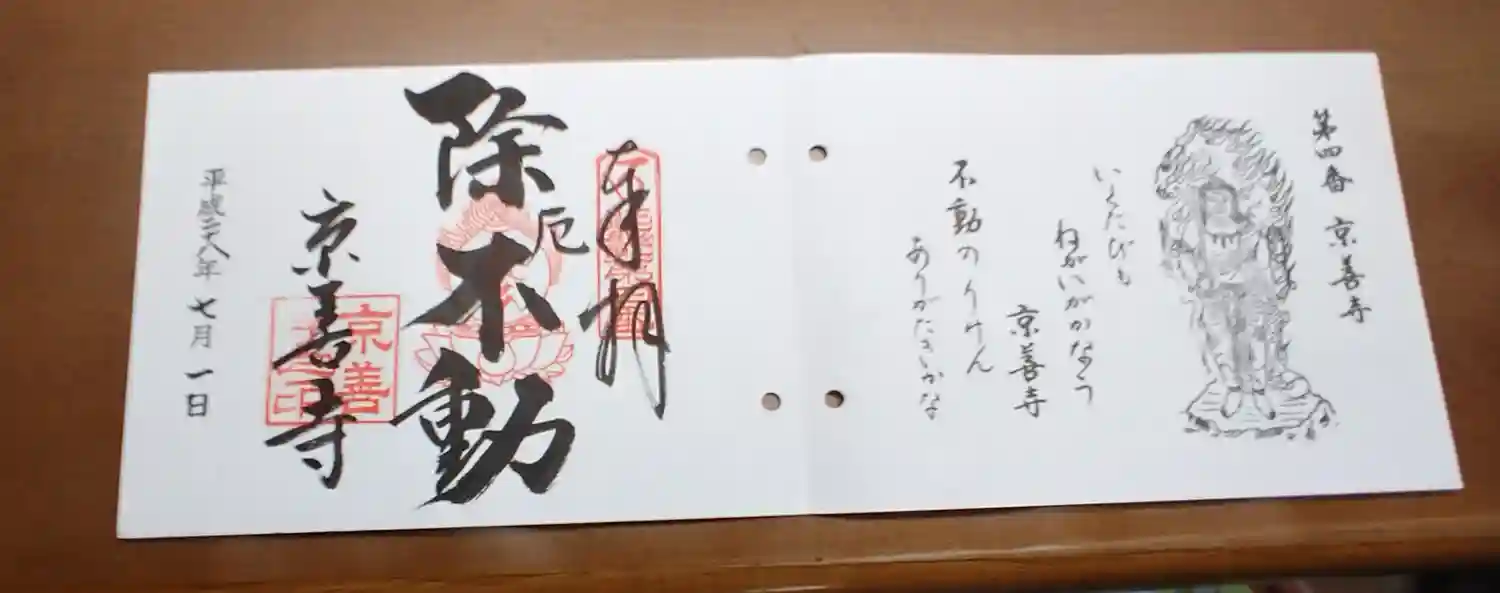 第四番 京善寺
いくたびも
ねがいがかなう
京善寺
不動のりけん
ありがたきかな
奉拝
除厄不動
京善寺
京善
平成二十八年七月一日